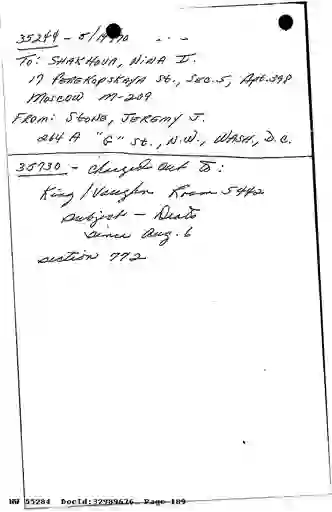 35244 - 5/19/70 - -
To: SHAKHOVA, NINA I.
17 PEREKOPSKAYA St., SEC. 5, Apt. 398
MOSCOW M-209
FROM: STONE, JEREMY J.
264 A "G" St., N.W., WASH, D.C.
35730 - charged out to:
King / Vaughn Room 5442
subject -
since Aug. 6
section 772
NW 55284 DocId:32989626 Page 189